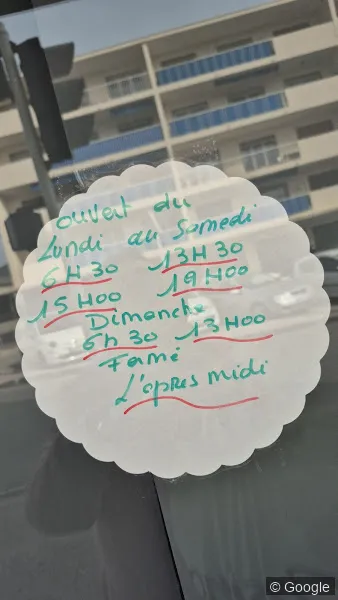 ouvert du
Lundi au Samedi
6H30 13H30
15H00 19H00
Dimanche
6h30 13H00
Famé
L'apres midi
© Google